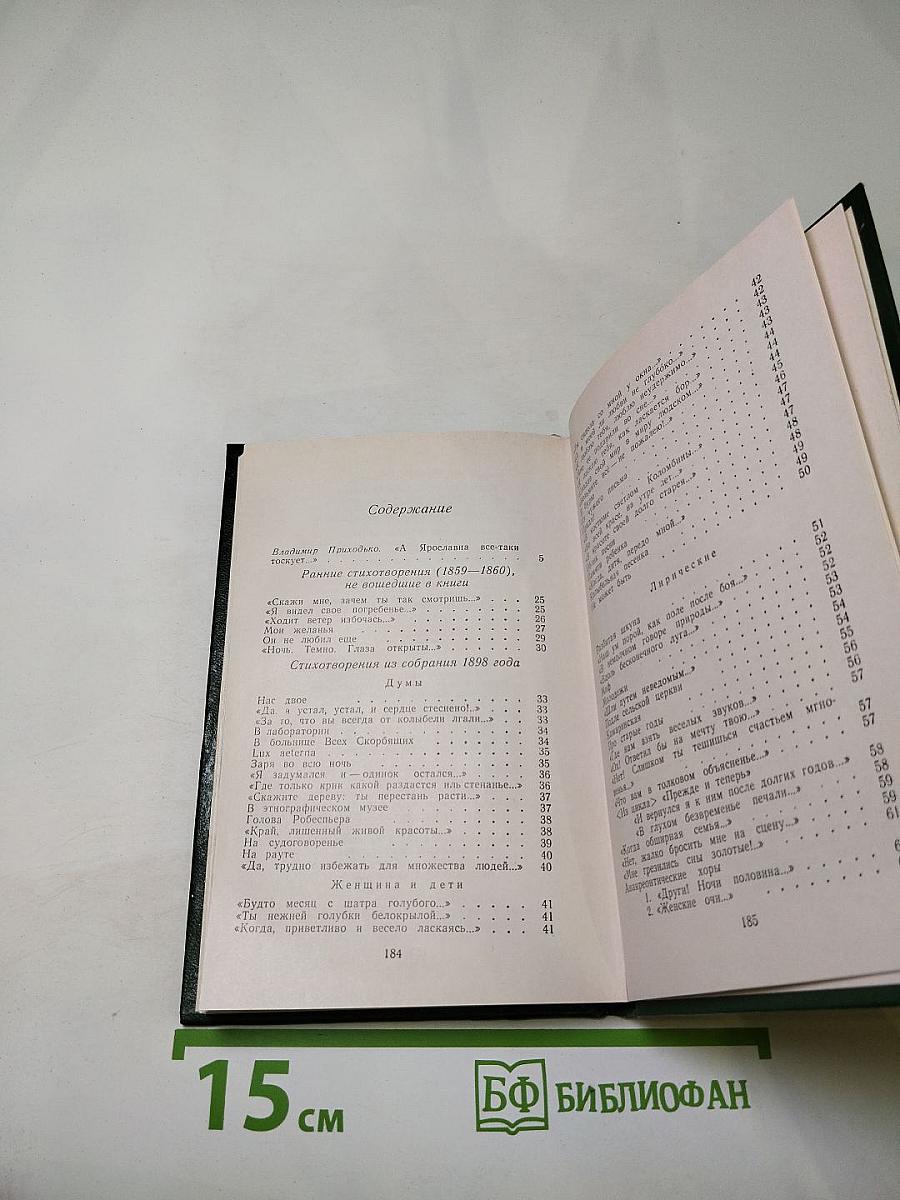 Содержание
Владимир Приходько. «А Ярославна все-таки
тоскует...» . . . . . . . . . . . . . . . . 5
Ранние стихотворения (1859—1860),
не вошедшие в книги
«Скажи мне, зачем ты так смотришь...» . . . 25
«Я видел свое погребенье...» . . . . . . . 25
«Ходит ветер избочась...» . . . . . . . . 26
Мои желанья . . . . . . . . . . . . 27
Он не любил еще . . . . . . . . . . . 29
«Ночь. Темно. Глаза открыты...» . . . . . . 30
Стихотворения из собрания 1898 года
Думы
Нас двое . . . . . . . . . . . . . . 33
«Да, я устал, устал, и сердце стеснено!..» . . . 33
«За то, что вы всегда от колыбели лгали...» . . . 33
В лаборатории . . . . . . . . . . . . 34
В больнице Всех Скорбящих . . . . . . . . 34
Lux aeterna . . . . . . . . . . . . . 35
Заря во всю ночь . . . . . . . . . . . 35
«Я задумался и — одинок остался...» . . . . . 36
«Где только крик какой раздастся иль стенанье...» 36
«Скажите дереву: ты перестань расти...» . . . 37
В этнографическом музее . . . . . . . . . 37
Голова Робеспьера . . . . . . . . . . . 38
«Край, лишенный живой красоты...» . . . . . 38
На судоговоренье . . . . . . . . . . . 39
На рауте . . . . . . . . . . . . . . 40
«Да, трудно избежать для множества людей...» . . 40
Женщина и дети
«Будто месяц с шатра голубого...» . . . . . 41
«Ты нежней голубки белокрылой...» . . . . . 41
«Когда, приветливо и весело ласкаясь...» . . . 41
184
со мной у окна...» 42
любви не глубоко...» 42
тебя, люблю неудержимо...» 43
во сне...» 43
как ласкается бор...» 43
свой мир в миру людском...» 44
все — не пожалею!..» 44
44
письма 45
46
костюме светлом Коломбины...» 47
красе, на утре лет...» 47
своей долго старея...» 47
песни 48
ребенка 48
дитя, передо мной...» 49
Колыбельная песенка 49
может быть 50
Лирические
Разбитая шкуна 51
«Наш ум порой, как поле после боя...» 52
«В немолчном говоре природы...» 52
«Вдоль бесконечного луга...» 52
Миф 53
Молодежи 53
«Шли путем неведомым...» 54
Подле сельской церкви 54
Камаринская 55
Про старые годы 56
«Где нам взять веселых звуков...» 56
«Ох! Ответил бы на мечту твою...» 57
«Нет! Слишком ты тешишься счастьем мгно-
венья...» 57
«Что вам в толковом объясненье...» 57
<Из цикла> «Прежде и теперь»
«И вернулся я к ним после долгих годов...» 58
«В глухом безвременье печали...» 58
«Когда обширная семья...» 59
«Нет, жалко бросить мне на сцену...» 59
«Мне грезились сны золотые!..» 61
Анакреонтические хоры
1. «Други! Ночи половина...»
2. «Женские очи...»
185
15 см
БФ БИБЛИОФАН